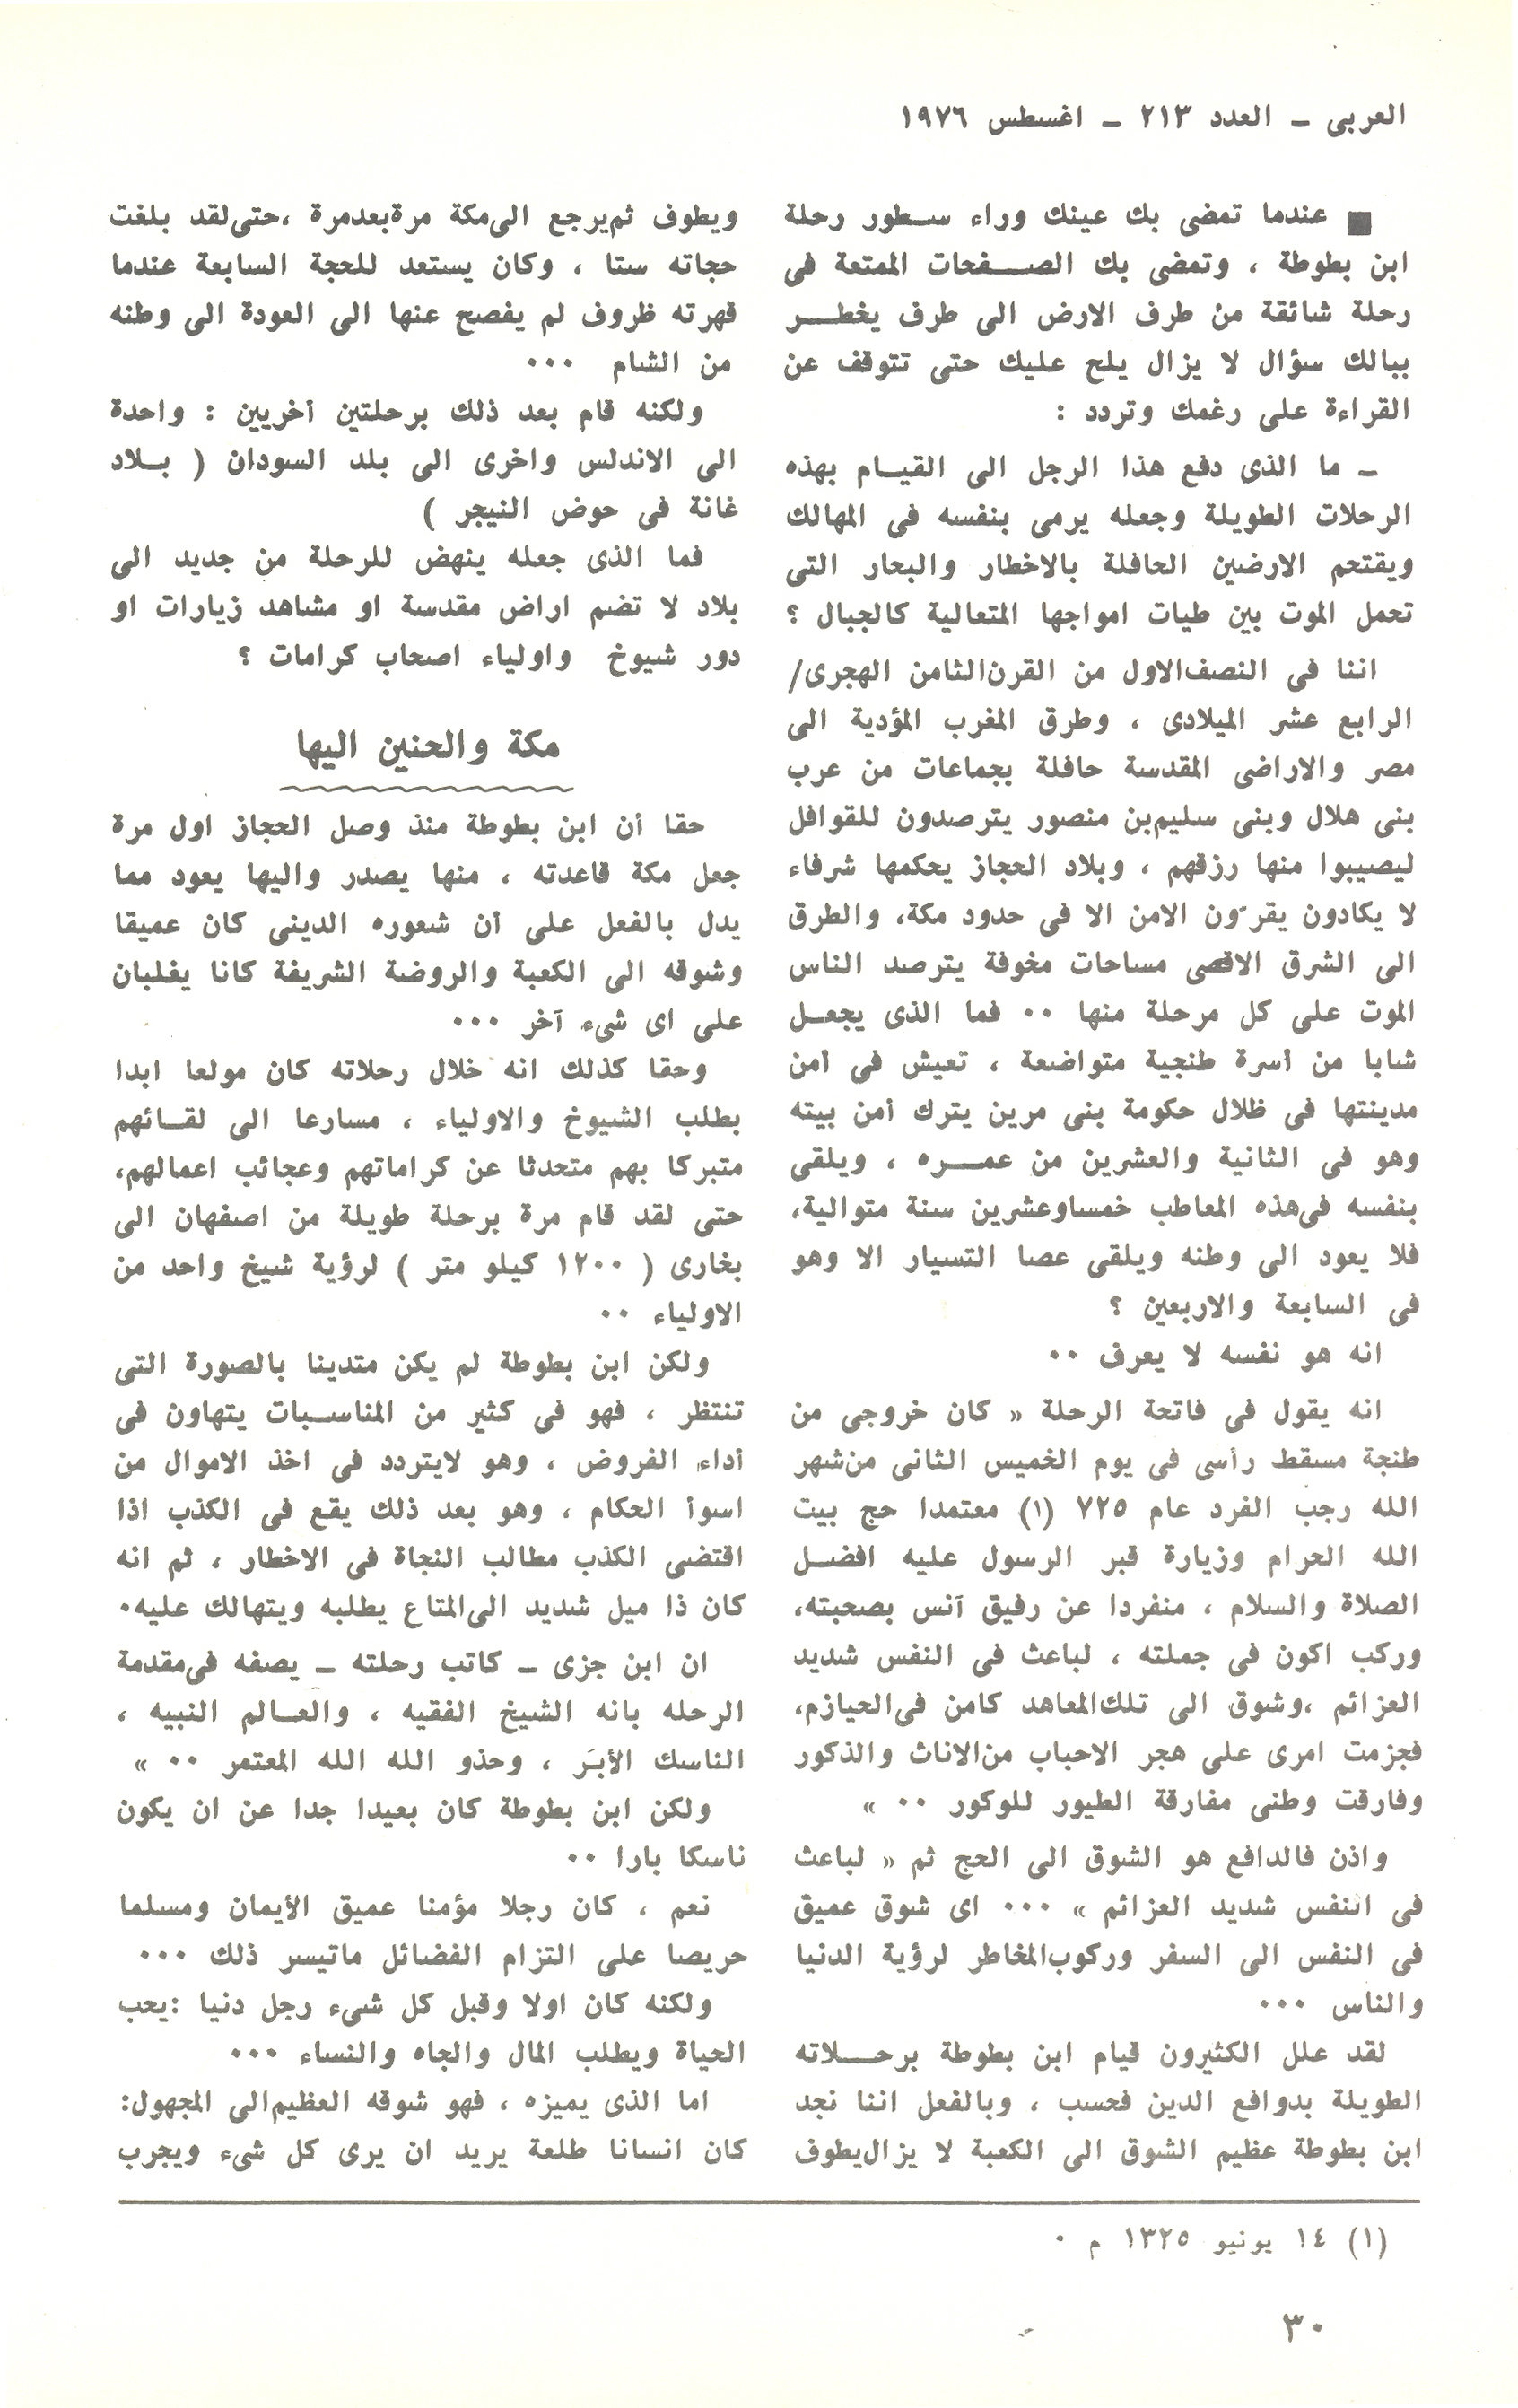 العربى – العدد ٢١٣ – اغسطس ١٩٧٦
■ عندما تمضى بك عينك وراء سطور رحلة
ابن بطوطة ، وتمضى بك الصفحات الممتعة فى
رحلة شائقة من طرف الارض الى طرف يخطر
ببالك سؤال لا يزال يلح عليك حتى تتوقف عن
القراءة على رغمك وتردد :
– ما الذى دفع هذا الرجل الى القيام بهذه
الرحلات الطويلة وجعله يرمى بنفسه فى المهالك
ويقتحم الارضين الحافلة بالاخطار والبحار التى
تحمل الموت بين طيات امواجها المتعالية كالجبال ؟
اننا فى النصف الاول من القرن الثامن الهجرى/
الرابع عشر الميلادى ، وطرق المغرب المؤدية الى
مصر والاراضى المقدسة حافلة بجماعات من عرب
بنى هلال وبنى سليم بن منصور يترصدون للقوافل
ليصيبوا منها رزقهم ، وبلاد الحجاز يحكمها شرفاء
لا يكادون يقرّون الامن الا فى حدود مكة، والطرق
الى الشرق الاقصى مساحات مخوفة يترصد الناس
الموت على كل مرحلة منها ٠٠ فما الذى يجعل
شابا من أسرة طنجية متواضعة ، تعيش فى أمن
مدينتها فى ظلال حكومة بنى مرين يترك أمن بيته
وهو فى الثانية والعشرين من عمره ، ويلقى
بنفسه فى هذه المعاطب خمسا وعشرين سنة متوالية،
فلا يعود الى وطنه ويلقى عصا التسيار الا وهو
فى السابعة والاربعين ؟
انه هو نفسه لا يعرف ٠٠
انه يقول فى فاتحة الرحلة « كان خروجى من
طنجة مسقط رأسى فى يوم الخميس الثانى من شهر
الله رجب الفرد عام ٧٢٥ (١) معتمدا حج بيت
الله الحرام وزيارة قبر الرسول عليه افضل
الصلاة والسلام ، منفردا عن رفيق آنس بصحبته،
وركب اكون فى جملته ، لباعث فى النفس شديد
العزائم ،وشوق الى تلك المعاهد كامن فى الحيازم،
فجزمت امرى على هجر الاحباب من الاناث والذكور
وفارقت وطنى مفارقة الطيور للوكور ٠٠ »
واذن فالدافع هو الشوق الى الحج ثم « لباعث
فى النفس شديد العزائم » ٠٠٠ اى شوق عميق
فى النفس الى السفر وركوب المخاطر لرؤية الدنيا
والناس ٠٠٠
لقد علل الكثيرون قيام ابن بطوطة برحلاته
الطويلة بدوافع الدين فحسب ، وبالفعل اننا نجد
ابن بطوطة عظيم الشوق الى الكعبة لا يزال يطوف
ويطوف ثم يرجع الى مكة مرة بعد مرة ،حتى لقد بلغت
حجاته ستا ، وكان يستعد للحجة السابعة عندما
قهرته ظروف لم يفصح عنها الى العودة الى وطنه
من الشام ٠٠٠
ولكنه قام بعد ذلك برحلتين أخريين : واحدة
الى الاندلس واخرى الى بلد السودان ( بلاد
غانة فى حوض النيجر )
فما الذى جعله ينهض للرحلة من جديد الى
بلاد لا تضم اراض مقدسة او مشاهد زيارات او
دور شيوخ واولياء اصحاب كرامات ؟
مكة والحنين اليها
حقا أن ابن بطوطة منذ وصل الحجاز اول مرة
جعل مكة قاعدته ، منها يصدر واليها يعود مما
يدل بالفعل على أن شعوره الدينى كان عميقا
وشوقه الى الكعبة والروضة الشريفة كانا يغلبان
على اى شىء آخر ٠٠٠
وحقا كذلك انه خلال رحلاته كان مولعا ابدا
بطلب الشيوخ والاولياء ، مسارعا الى لقائهم
متبركا بهم متحدثا عن كراماتهم وعجائب اعمالهم،
حتى لقد قام مرة برحلة طويلة من اصفهان الى
بخارى ( ١٢٠٠ كيلو متر ) لرؤية شيخ واحد من
الاولياء ٠٠
ولكن ابن بطوطة لم يكن متدينا بالصورة التى
تنتظر ، فهو فى كثير من المناسبات يتهاون فى
أداء الفروض ، وهو لايتردد فى اخذ الاموال من
اسوأ الحكام ، وهو بعد ذلك يقع فى الكذب اذا
اقتضى الكذب مطالب النجاة فى الاخطار ، ثم انه
كان ذا ميل شديد الى المتاع يطلبه ويتهالك عليه٠
ان ابن جزى – كاتب رحلته – يصفه فى مقدمة
الرحله بانه الشيخ الفقيه ، والعالم النبيه ،
الناسك الأبَر ، وحذو الله الله المعتمر ٠٠ »
ولكن ابن بطوطة كان بعيدا جدا عن ان يكون
ناسكا بارا ٠٠
نعم ، كان رجلا مؤمنا عميق الأيمان ومسلما
حريصا على التزام الفضائل ماتيسر ذلك ٠٠٠
ولكنه كان اولا وقبل كل شىء رجل دنيا :يحب
الحياة ويطلب المال والجاه والنساء ٠٠٠
اما الذى يميزه ، فهو شوقه العظيم الى المجهول:
كان انسانا طلعة يريد ان يرى كل شىء ويجرب
(١) ١٤ يونيو ١٣٢٥ م ٠
٣٠